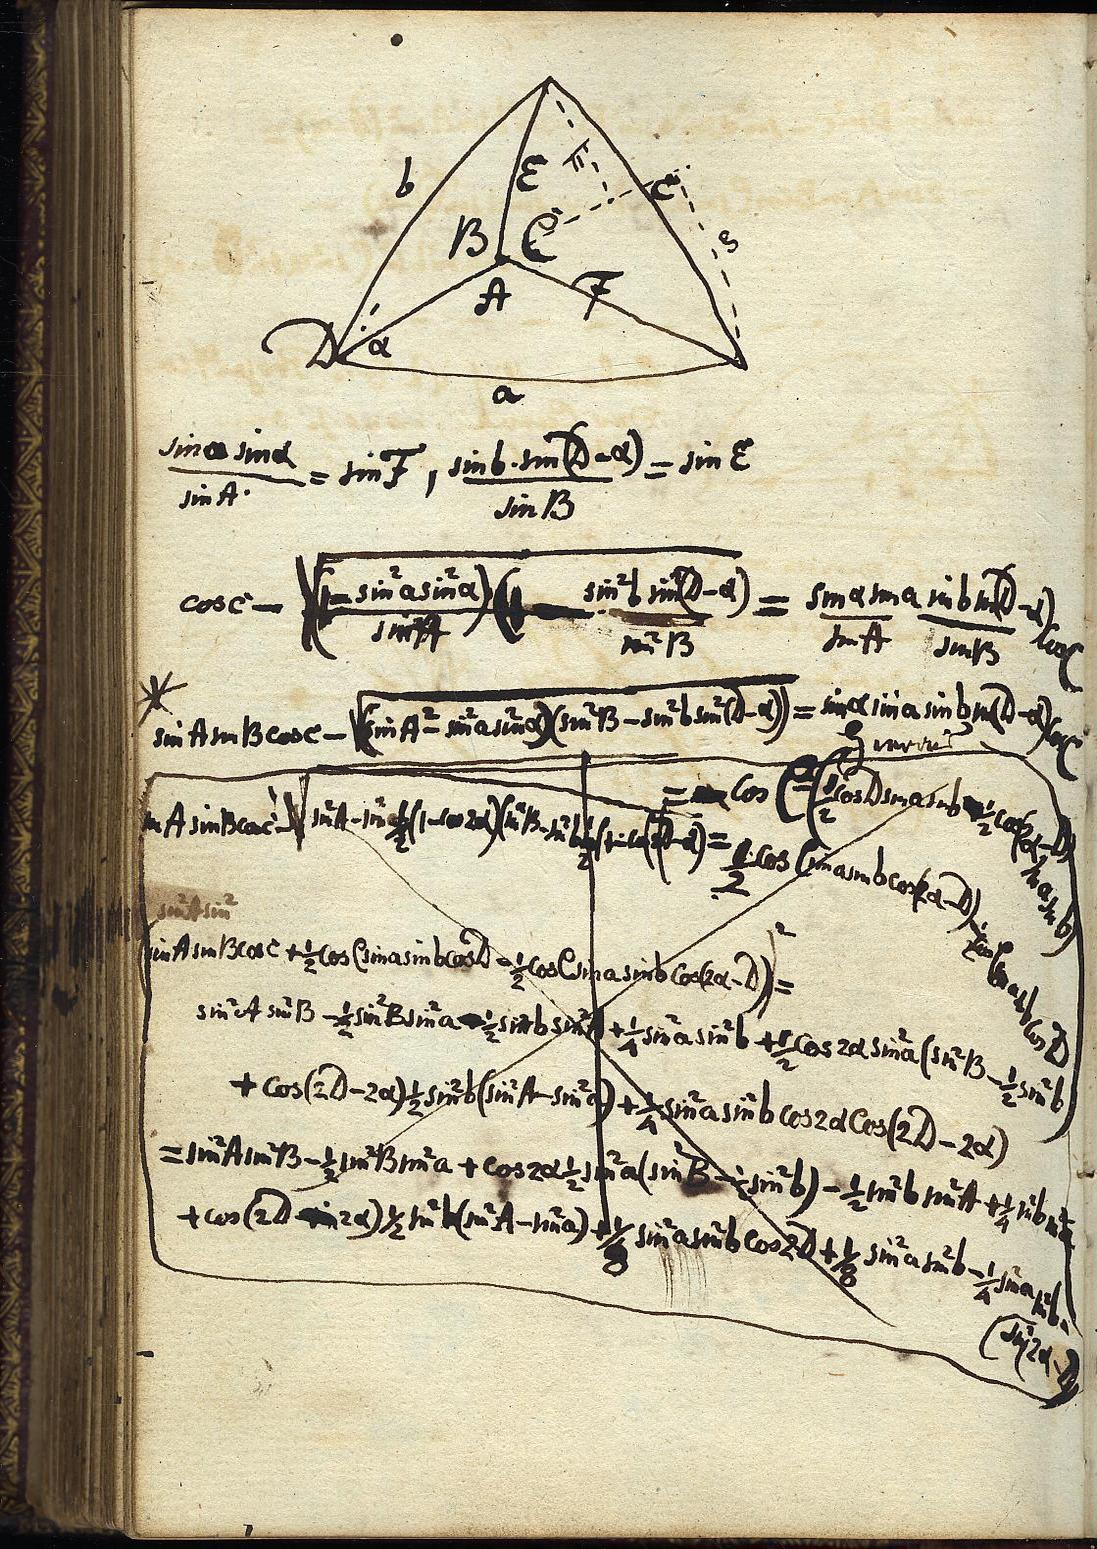 b
E
c
B
C
s
A
F
D
α
a
sin a sin α / sin A = sin F, sin b · sin(D - α) / sin B = sin E
cos c - √((1 - sin²a sin²α / sin²A)(1 - sin²b sin²(D - α) / sin²B)) = sin α sin a / sin A sin b sin(D - α) / sin B cos C
sin A sin B cos c - √((sin A² - sin²a sin²α)(sin²B - sin²b sin²(D - α))) = sin α sin a sin b sin(D - α) cos C
= cos C (½ cos D sin a sin b - ½ cos(2α - D) sin a sin b)
sin A sin B cos c - √(sin²A - sin²a ½(1 - cos 2α))(sin²B - sin²b ½
= ½ cos C sin a sin b cos(2α - D)
sin²A sin²
sin A sin B cos c + ½ cos C sin a sin b cos D - ½ cos C sin a sin b cos(2α - D))² =
sin²A sin²B - ½ sin²B sin²a - ½ sin²b sin²A + ¼ sin²a sin²b + ½ cos 2α sin²a (sin²B - ½ sin²b
+ cos(2D - 2α) ½ sin²b (sin²A - sin²a) + ¼ sin²a sin²b cos 2α cos(2D - 2α)
= sin²A sin²B - ½ sin²B sin²a + cos 2α ½ sin²a (sin²B - ½ sin²b) - ½ sin²b sin²A + ¼ sin²b sin²a
+ cos(2D - 2α) ½ sin²b (sin²A - sin²a) + ⅛ sin²a sin²b cos 2D + ⅛ sin²a sin²b - ¼ sin²a sin²b
(sin²2α - D)